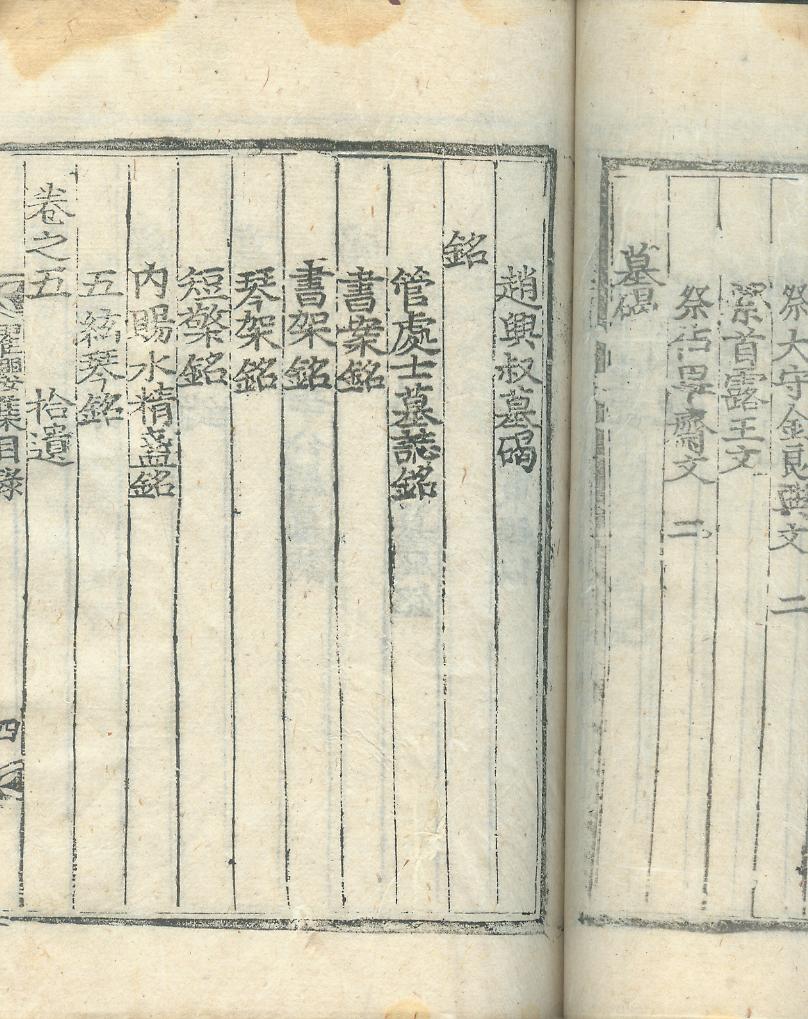 祭大守金良璵文 二
祭首露王文
祭佔畢齋文 二
墓碣
趙興叔墓碣
銘
管處士墓誌銘
書案銘
書架銘
琴架銘
短檠銘
內賜水精盞銘
五絃琴銘
卷之五 拾遺
濯纓集目錄 四